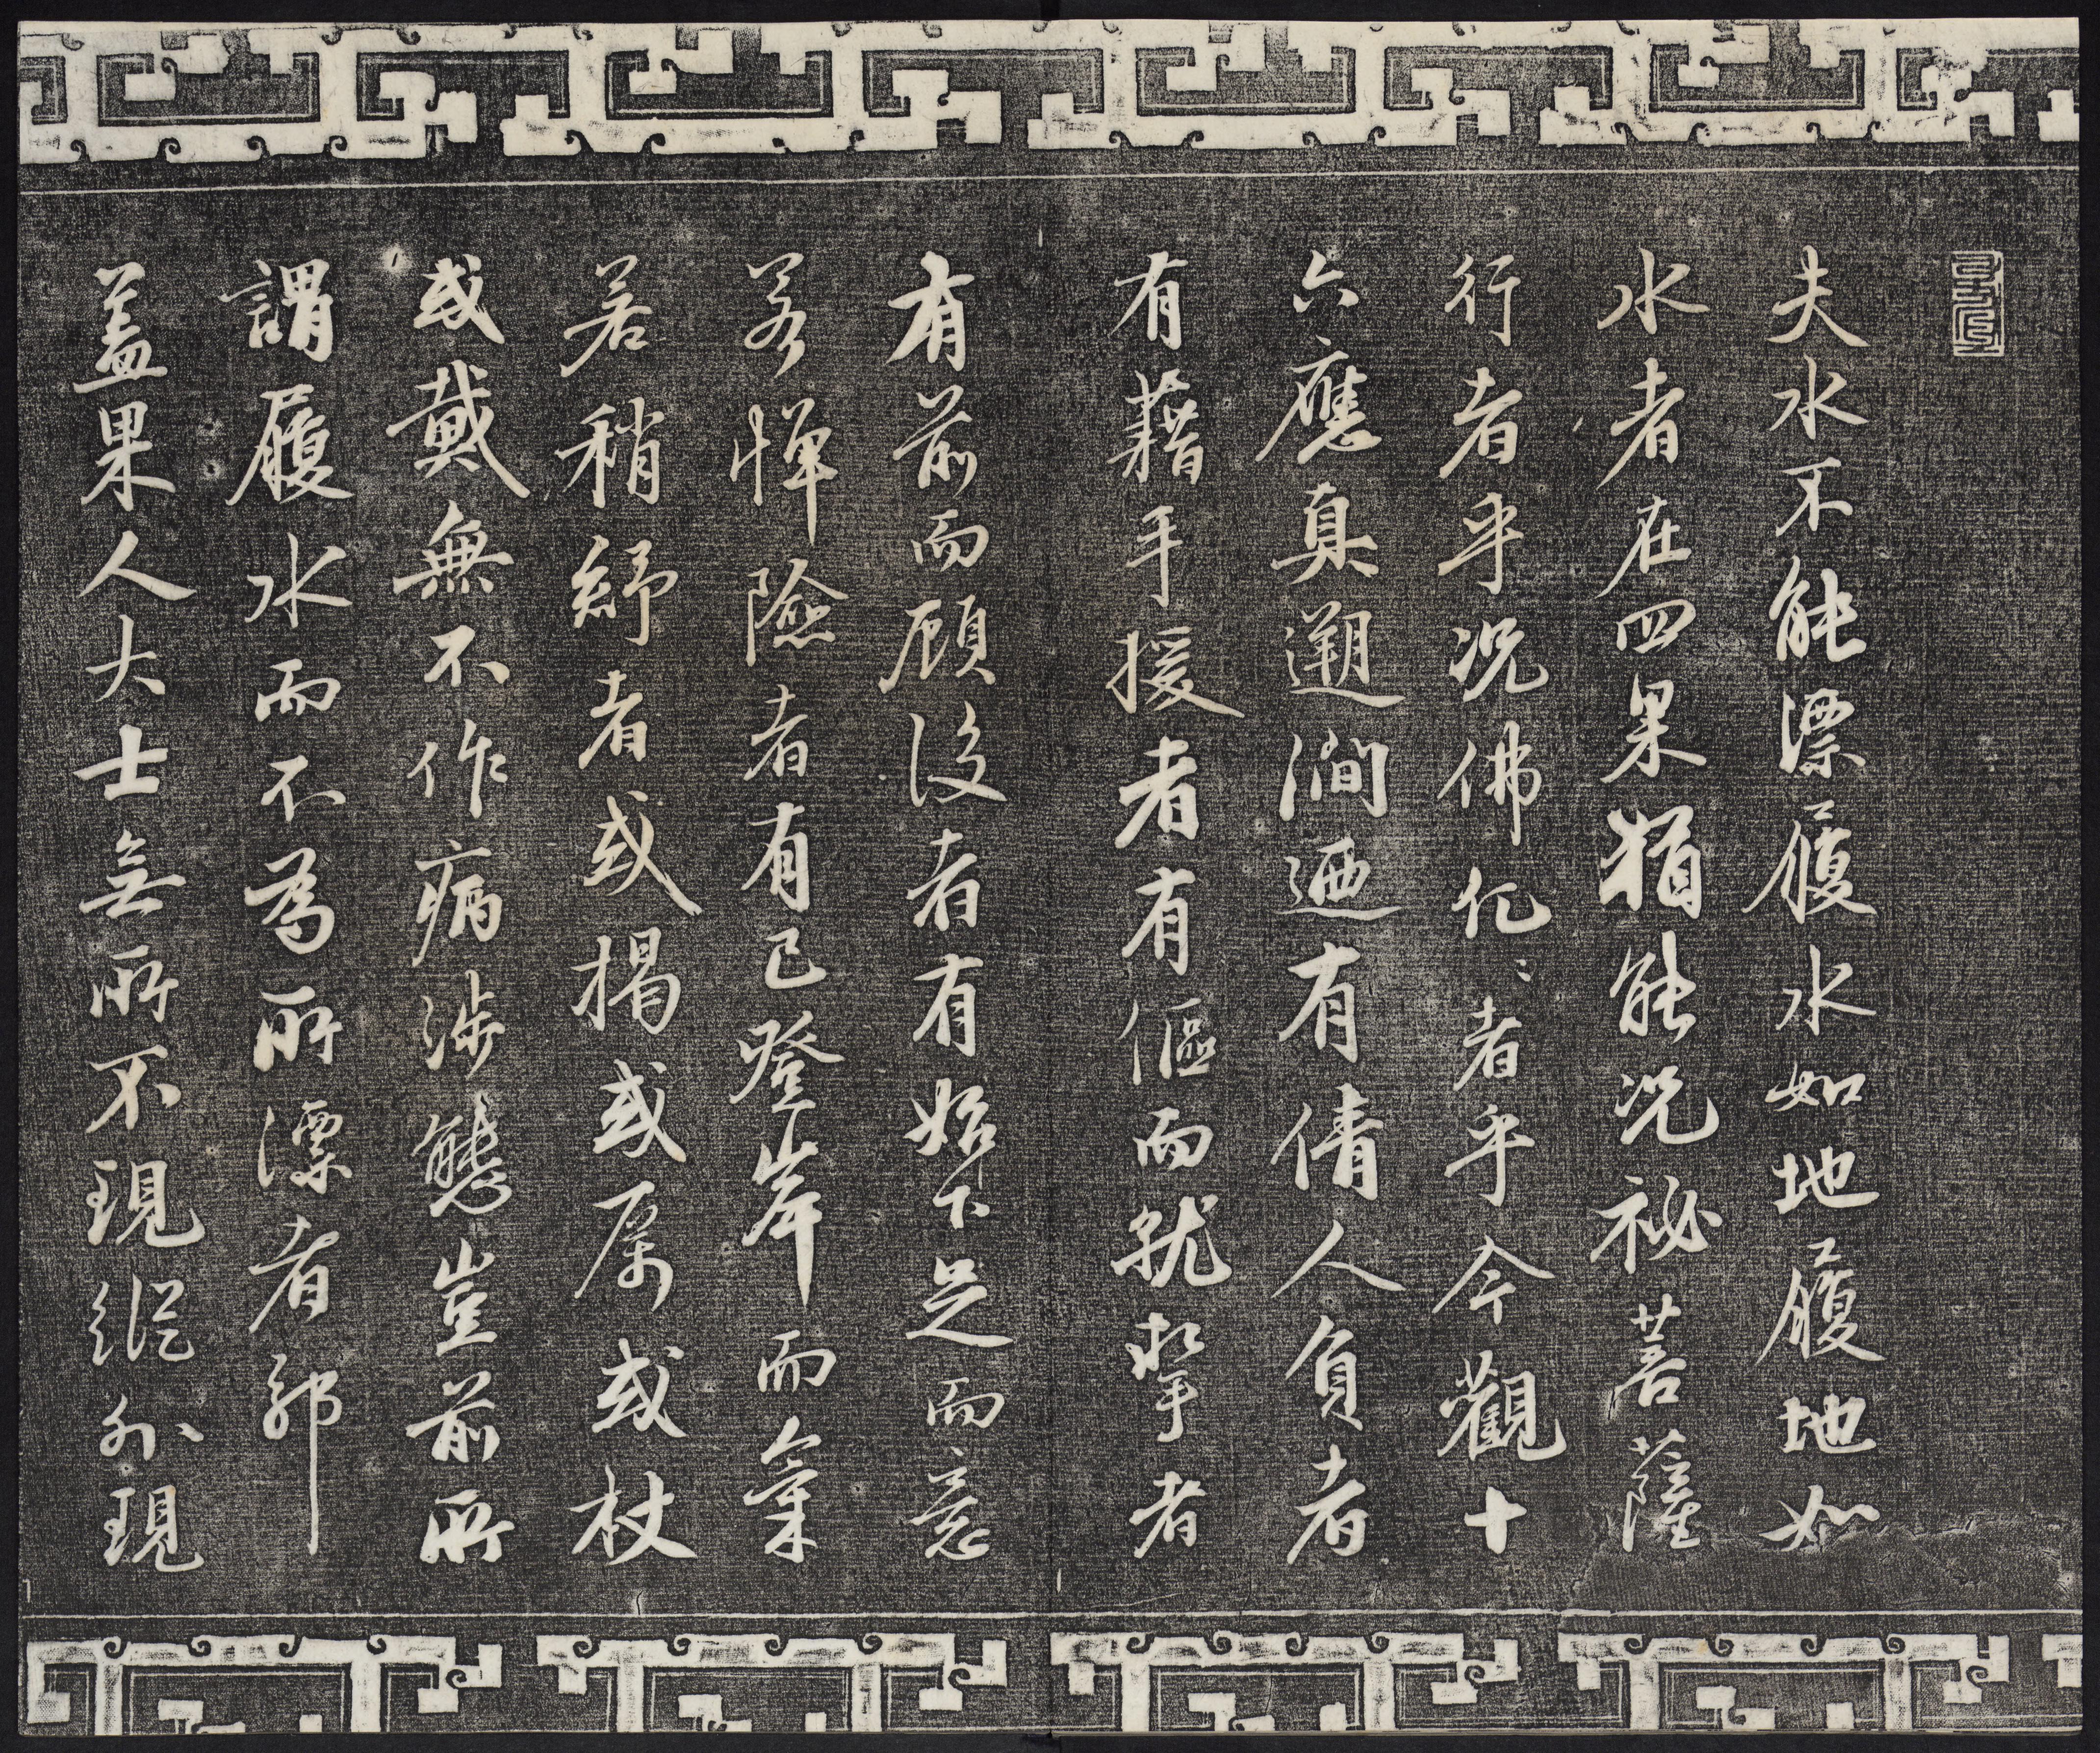 夫水不能漂履水如地履地如
水者在四果猶能况祕菩薩
行者乎况佛化〻者乎今觀十
六應真遡澗迺有倩人負者
有藉手援者有傴而就挈者
有前而顧後者有始下足而意
若憚險者有已登岸而氣
若稍紓者或揭或厲或杖
或戴無不作病涉態豈前所
謂履水而不為所漂者耶
蓋果人大士無所不現縱外現